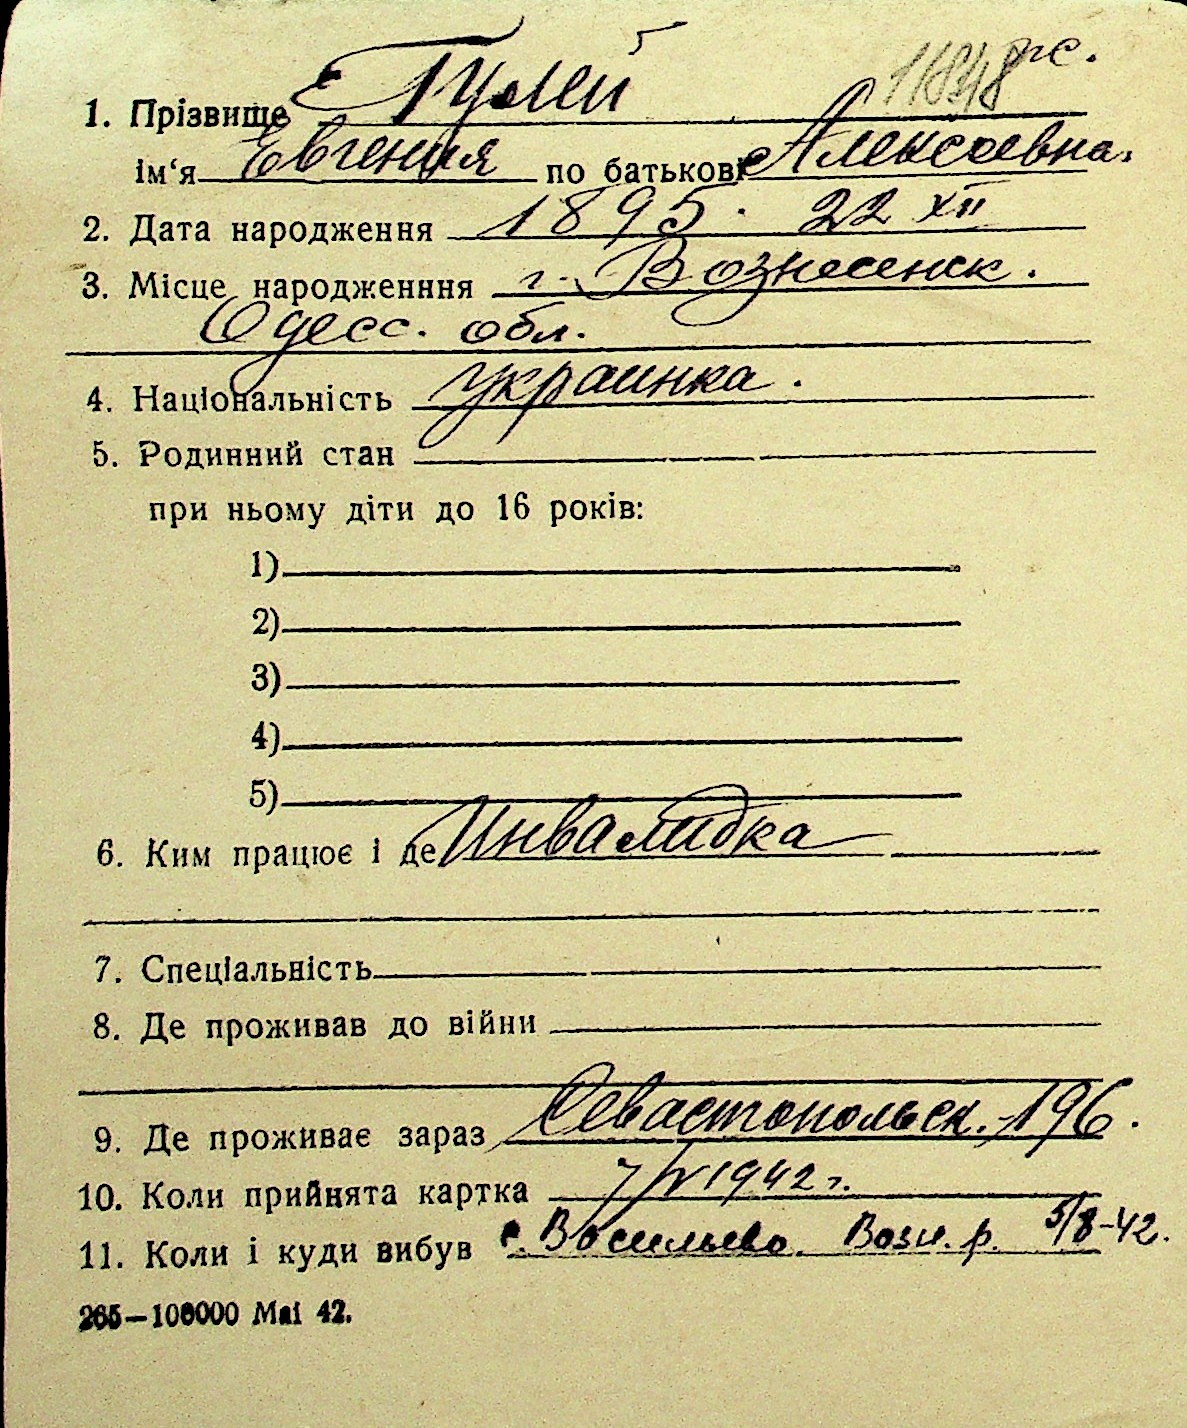 11848 рс.
1. Прізвище Гулей
ім‘я Евгения по батькові Алексеевна.
2. Дата народження 1895. 22 XII
3. Місце народженння г. Вознесенск.
Одесс. обл.
4. Національність украинка.
5. Родинний стан
при ньому діти до 16 років:
1)
2)
3)
4)
5)
6. Ким працює і де Инвалидка
7. Спеціальність
8. Де проживав до війни
9. Де проживає зараз Севастопольск. 196.
10. Коли прийнята картка 7/IV 1942 г.
11. Коли і куди вибув с. Васильево. Возн. р. 5/8-42.
265—100000 Mai 42.